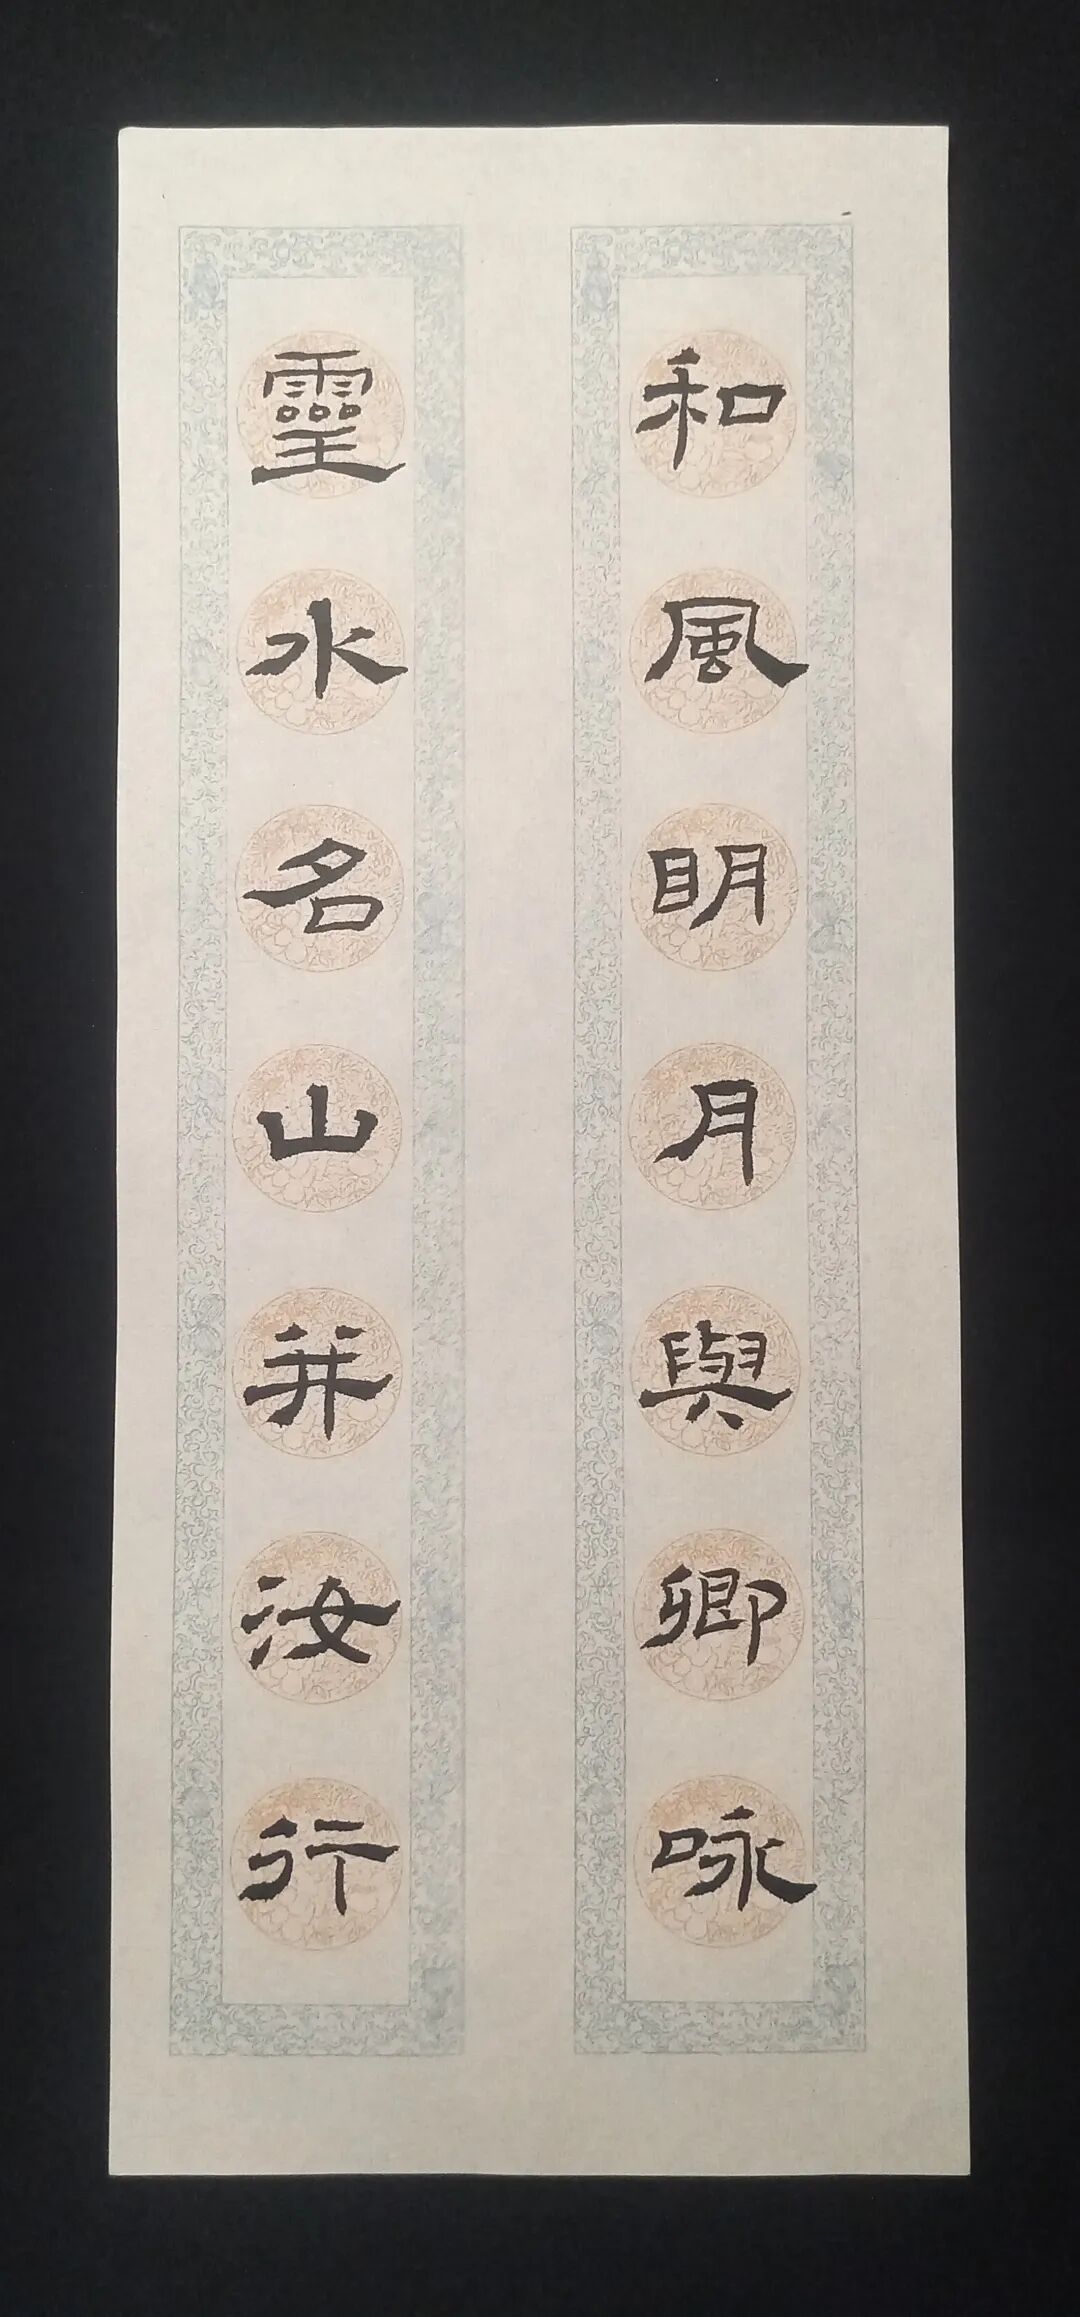 和風明月與卿咏
靈水名山并汝行